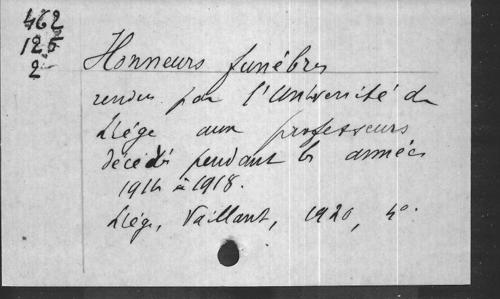 462
125
2
Honneurs funèbres
rendus par l'Université de
Liége aux professeurs
décédés pendant les années
1914 à 1918.
Liége, Vaillant, 1920, 4°.